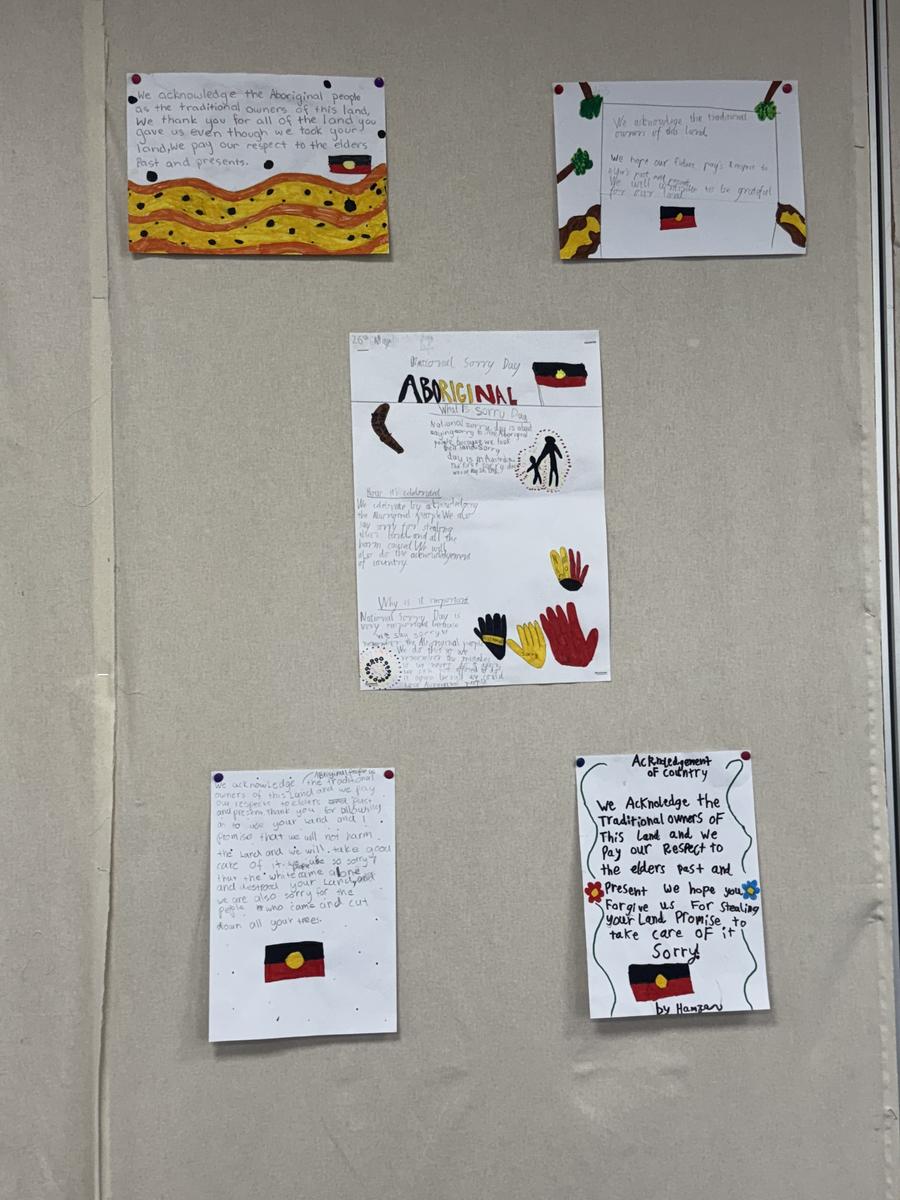 We acknowledge the Aboriginal people
as the traditional owners of this land,
We thank you for all of the land you
gave us even though we took your
land, We pay our respect to the elders
Past and presents.
We acknowlege the traditional
owners of this land
We hope our future pay's Respect to
elders past and present
We will to be grateful
for our land
26th May
National Sorry Day
ABORIGINAL
What is Sorry Day
National sorry day is about
saying sorry to the Aboriginal
people because we took
their land. Sorry
day is in Australia
The first sorry day
How it's celebrated
We celebrate by acknowledging
the Aboriginal people We also
say sorry for stealing
their land and all the
harm caused We will
also do the acknowledgement
of country
Why is it important
National Sorry Day is
very important because
we say sorry
the Aboriginal people
We do this so we
remember
Sorry
we acknowledge the Traditional Aboriginal People as
owners of this Land and we pay
our respects to elders past
and present. Thank you for allowing
us to use your Land and I
promise that we will not harm
the Land and we will take good
care of it. so sorry
that the white came alone
and destroyed your Land, and
we are also sorry for the
people who came and cut
down all your trees.
Acknledgement
of country
We Acknoledge the
Traditional owners of
This Land and we
Pay our Respect to
the elders Past and
Present We hope you
Forgive us For Stealing
your Land Promise to
take care of it
Sorry!
by Hamzan